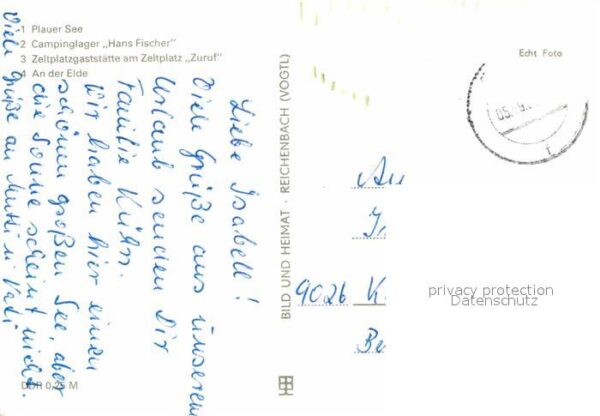 1 Plauer See
2 Campinglager „Hans Fischer"
3 Zeltplatzgaststätte am Zeltplatz „Zuruf"
4 An der Elde
Liebe Isabell!
Viele Grüße aus unserem
Urlaub senden Dir
Familie Kühn.
Wir haben hier einen
schönen großen See, aber
die Sonne scheint nicht.
Viele Grüße an Mutti u. Vati
DDR 0,25 M
BILD UND HEIMAT · REICHENBACH (VOGTL)
Echt Foto
05.
9026 K
privacy protection
Datenschutz